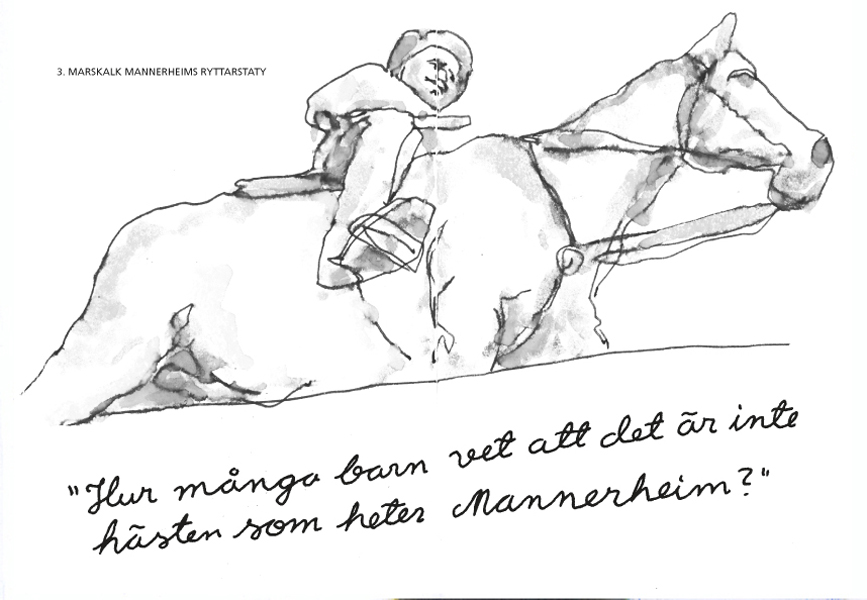 3. MARSKALK MANNERHEIMS RYTTARSTATY
"Hur många barn vet att det är inte
hästen som heter Mannerheim?"